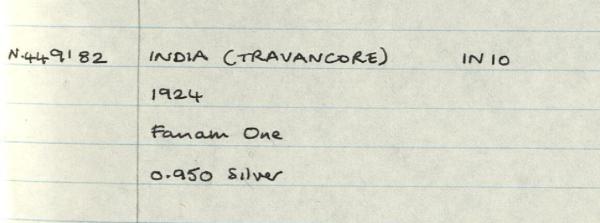 N.449182 INDIA (TRAVANCORE) IN 10
1924
Fanam One
0.950 Silver